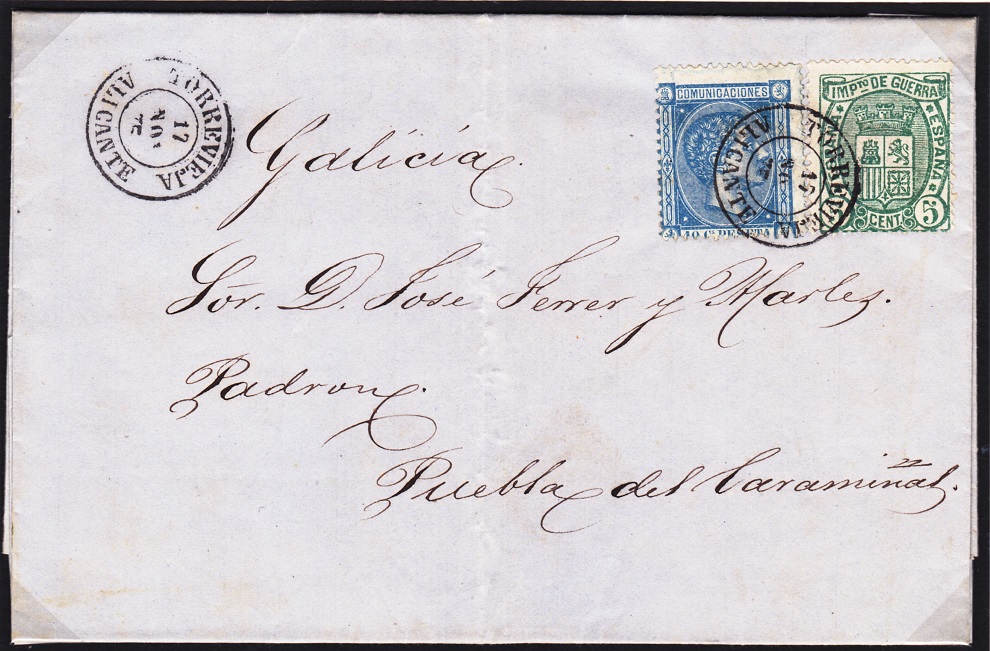 TORREVIEJA
17
NOV
75
ALICANTE
COMUNICACIONES
10 Cs PESETA
IMPTO DE GUERRA
ESPAÑA
5 CENTS
TORREVIEJA
17
NOV
75
ALICANTE
Galicia.
Sor. D. José Ferrer y Marlés.
Padron.
Puebla del Caramiñal.